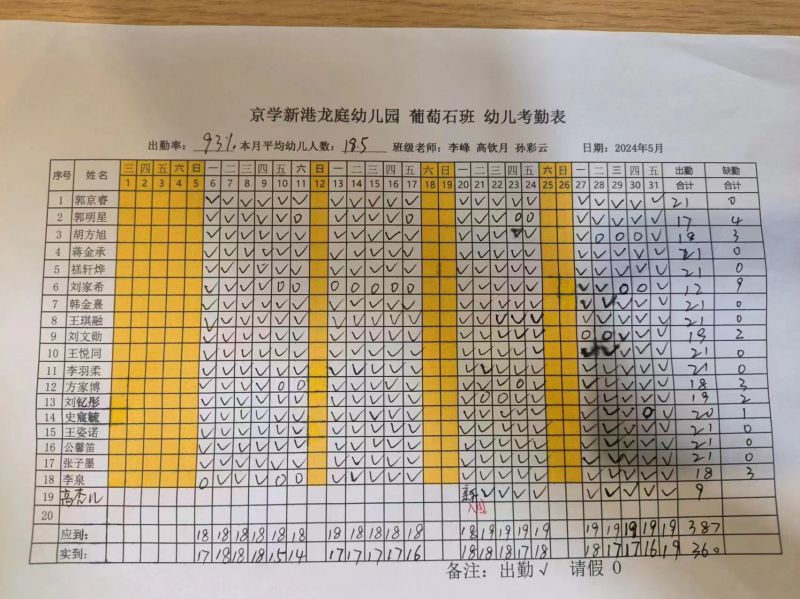 京学新港龙庭幼儿园 葡萄石班 幼儿考勤表
出勤率: 93% 本月平均幼儿人数: 18.5 班级老师: 李峰 高钦月 孙彩云 日期: 2024年5月
序号 姓名 三 四 五 六 日 一 二 三 四 五 六 日 一 二 三 四 五 六 日 一 二 三 四 五 六 日 一 二 三 四 五 出勤合计 缺勤合计
1 2 3 4 5 6 7 8 9 10 11 12 13 14 15 16 17 18 19 20 21 22 23 24 25 26 27 28 29 30 31
1 郭京睿 √ √ √ √ √ √ √ √ √ √ √ √ √ √ √ √ √ √ √ √ √ 21 0
2 郭明星 √ √ √ √ √ 0 √ √ √ √ 0 √ √ √ 0 0 √ √ √ √ √ 17 4
3 胡方旭 √ √ √ √ √ √ √ √ √ √ √ √ √ √ √ √ √ 0 0 0 √ 18 3
4 蒋金承 √ √ √ √ √ √ √ √ √ √ √ √ √ √ √ √ √ √ √ √ √ 21 0
5 禚轩烨 √ √ √ √ √ √ √ √ √ √ √ √ √ √ √ √ √ √ √ √ √ 21 0
6 刘家希 √ √ √ √ 0 0 0 0 0 0 0 √ √ √ √ √ √ √ 0 0 √ 12 9
7 韩金熹 √ √ √ √ √ √ √ √ √ √ √ √ √ √ √ √ √ √ √ √ √ 21 0
8 王琪融 √ √ √ √ √ √ √ √ √ √ √ √ √ √ √ √ √ √ √ √ √ 21 0
9 刘文勋 √ √ √ √ √ √ √ √ √ √ √ √ √ √ √ √ 0 0 √ √ √ 19 2
10 王悦同 √ √ √ √ √ √ √ √ √ √ √ √ √ √ √ √ √ √ √ √ √ 21 0
11 李羽柔 √ √ √ √ √ √ √ √ √ √ √ √ √ √ √ √ √ √ √ √ √ 21 0
12 方家博 √ √ √ √ 0 0 √ √ √ √ √ √ √ √ 0 √ √ √ √ √ √ 18 3
13 刘钇彤 √ √ √ √ √ √ √ √ √ √ √ √ 0 0 √ √ √ √ √ √ √ 19 2
14 史宸毓 √ √ √ √ √ √ √ √ √ √ √ √ √ √ √ √ √ √ √ √ 0 20 1
15 王姿诺 √ √ √ √ √ √ √ √ √ √ √ √ √ √ √ √ √ √ √ √ √ 21 0
16 公馨笛 √ √ √ √ √ √ √ √ √ √ √ √ √ √ √ √ √ √ √ √ √ 21 0
17 张子墨 √ √ √ √ √ √ √ √ √ √ √ √ √ √ √ √ √ √ √ √ √ 21 0
18 李泉 0 √ √ √ 0 0 √ √ √ √ √ √ √ √ √ √ √ √ √ √ √ 18 3
19 高杰儿 新入园 √ √ √ √ √ √ √ √ √ 9
20
应到: 18 18 18 18 18 18 18 18 18 18 18 18 19 19 19 19 19 19 19 19 19 387
实到: 17 18 18 18 15 14 17 17 17 17 16 18 18 18 17 18 18 17 17 16 19 360
备注: 出勤 √ 请假 0